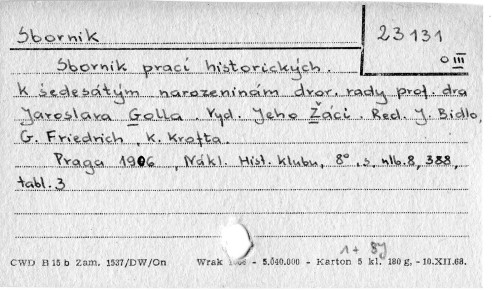 Sborník
23131
O III
Sborník prací historických.
K šedesátým narozeninám dvor. rady prof. dra
Jaroslava Golla. Vyd. Jeho Žáci. Red. J. Bidlo,
G. Friedrich, K. Krofta.
Praga 1906, Nákl. Hist. klubu, 8°, s. nlb. 8, 388,
tabl. 3
1+
CWD B 15 b Zam. 1537/DW/On Wrak - 5.040.000 - Karton 5 kl. 180 g. - 10.XII.68.